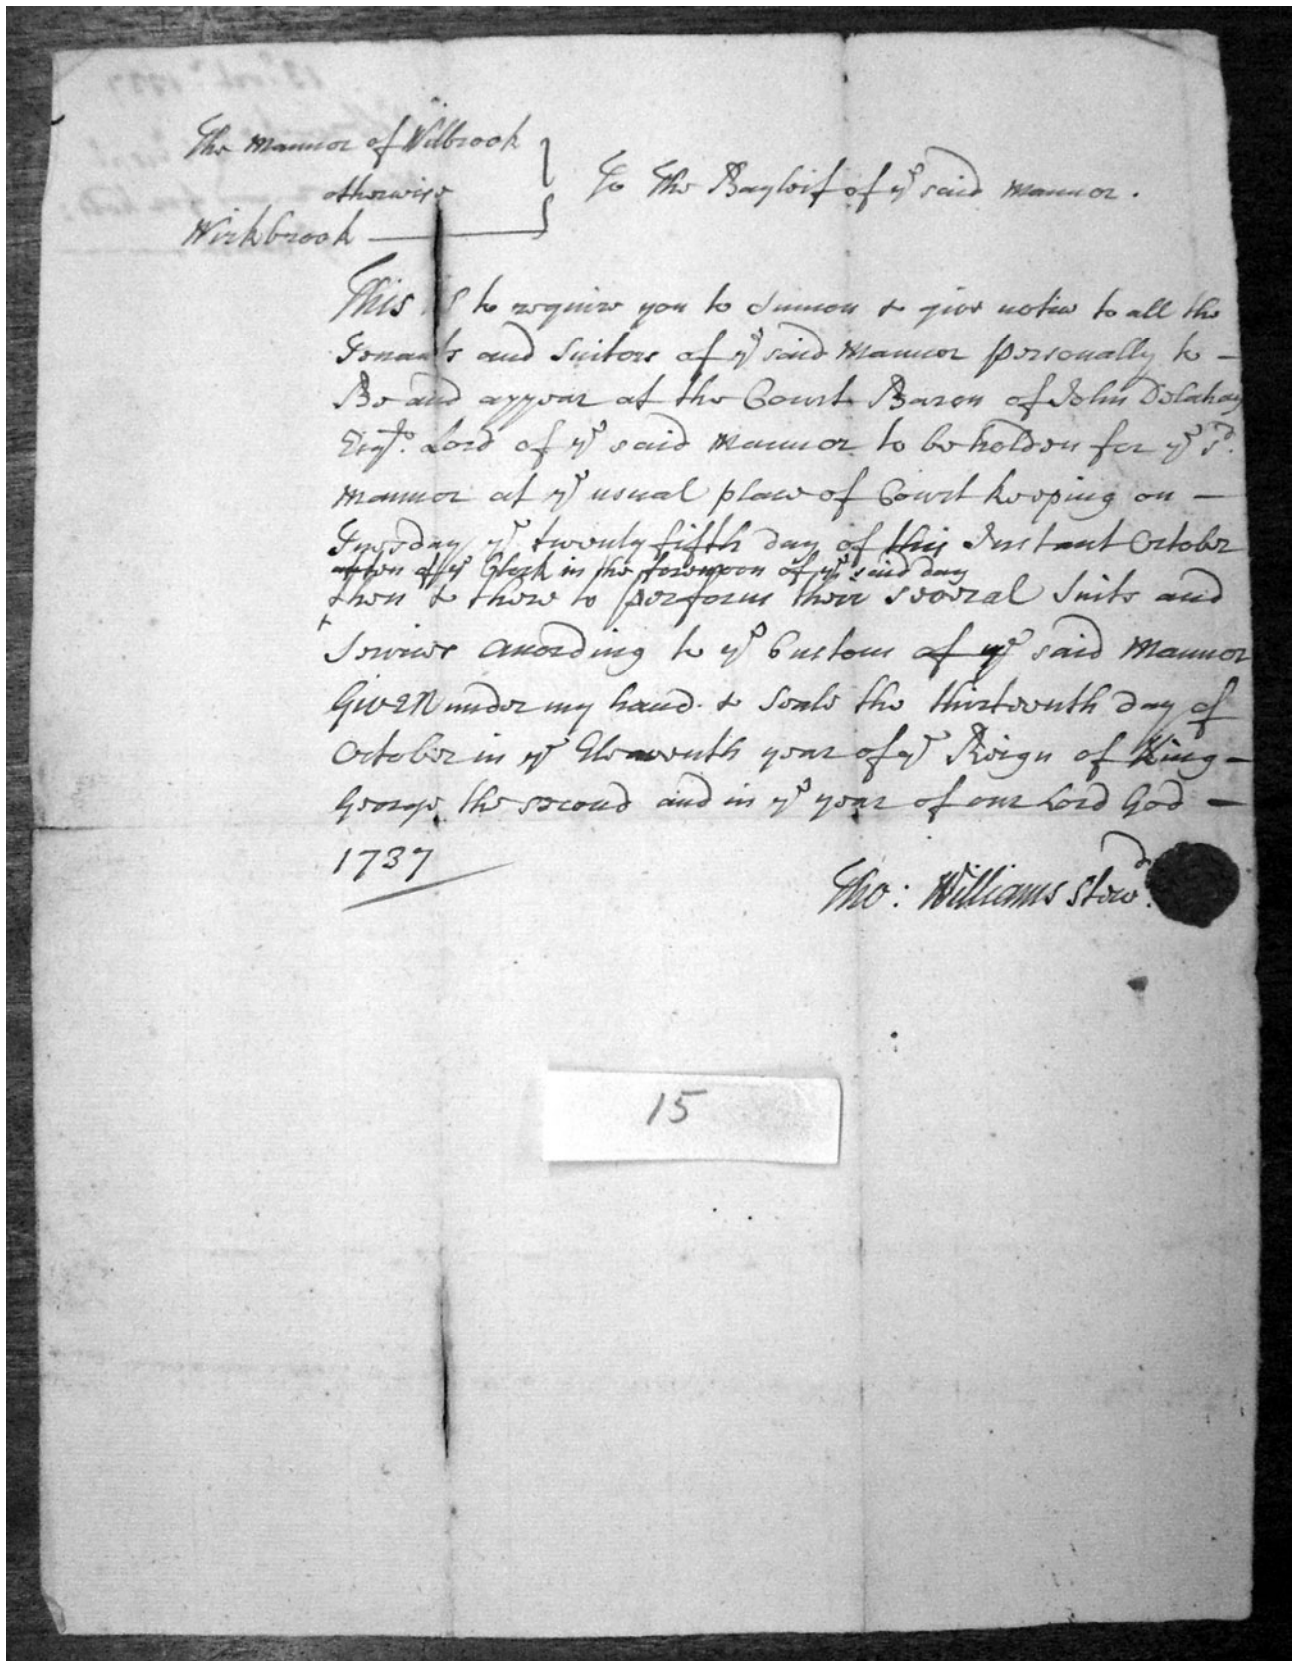 The Mannor of Wilbrook
otherwise
Wirkbrook
To The Bayleif of yᵉ said Mannor.
This is to require you to Sumon & give notice to all the
Tenants and Suitors of yᵉ said Mannor personally to -
Be and appear at the Court Baron of John Delahay
Esqʳ. Lord of yᵉ said Mannor to be holden for yᵉ sᵈ.
Mannor at yᵉ usual place of Court keeping on -
Tuesday yᵉ twenty fifth day of this Instant October
of yᵉ Clock in the forenoon of yᵉ said day
then & there to perform their several Suits and
Services According to yᵉ Custom of yᵉ said Mannor
Given under my hand & Seale the thirteenth day of
October in yᵉ Eleaventh year of yᵉ Reign of King -
George the second and in yᵉ year of our Lord God -
1737
Tho: Williams Stewᵈ.
15